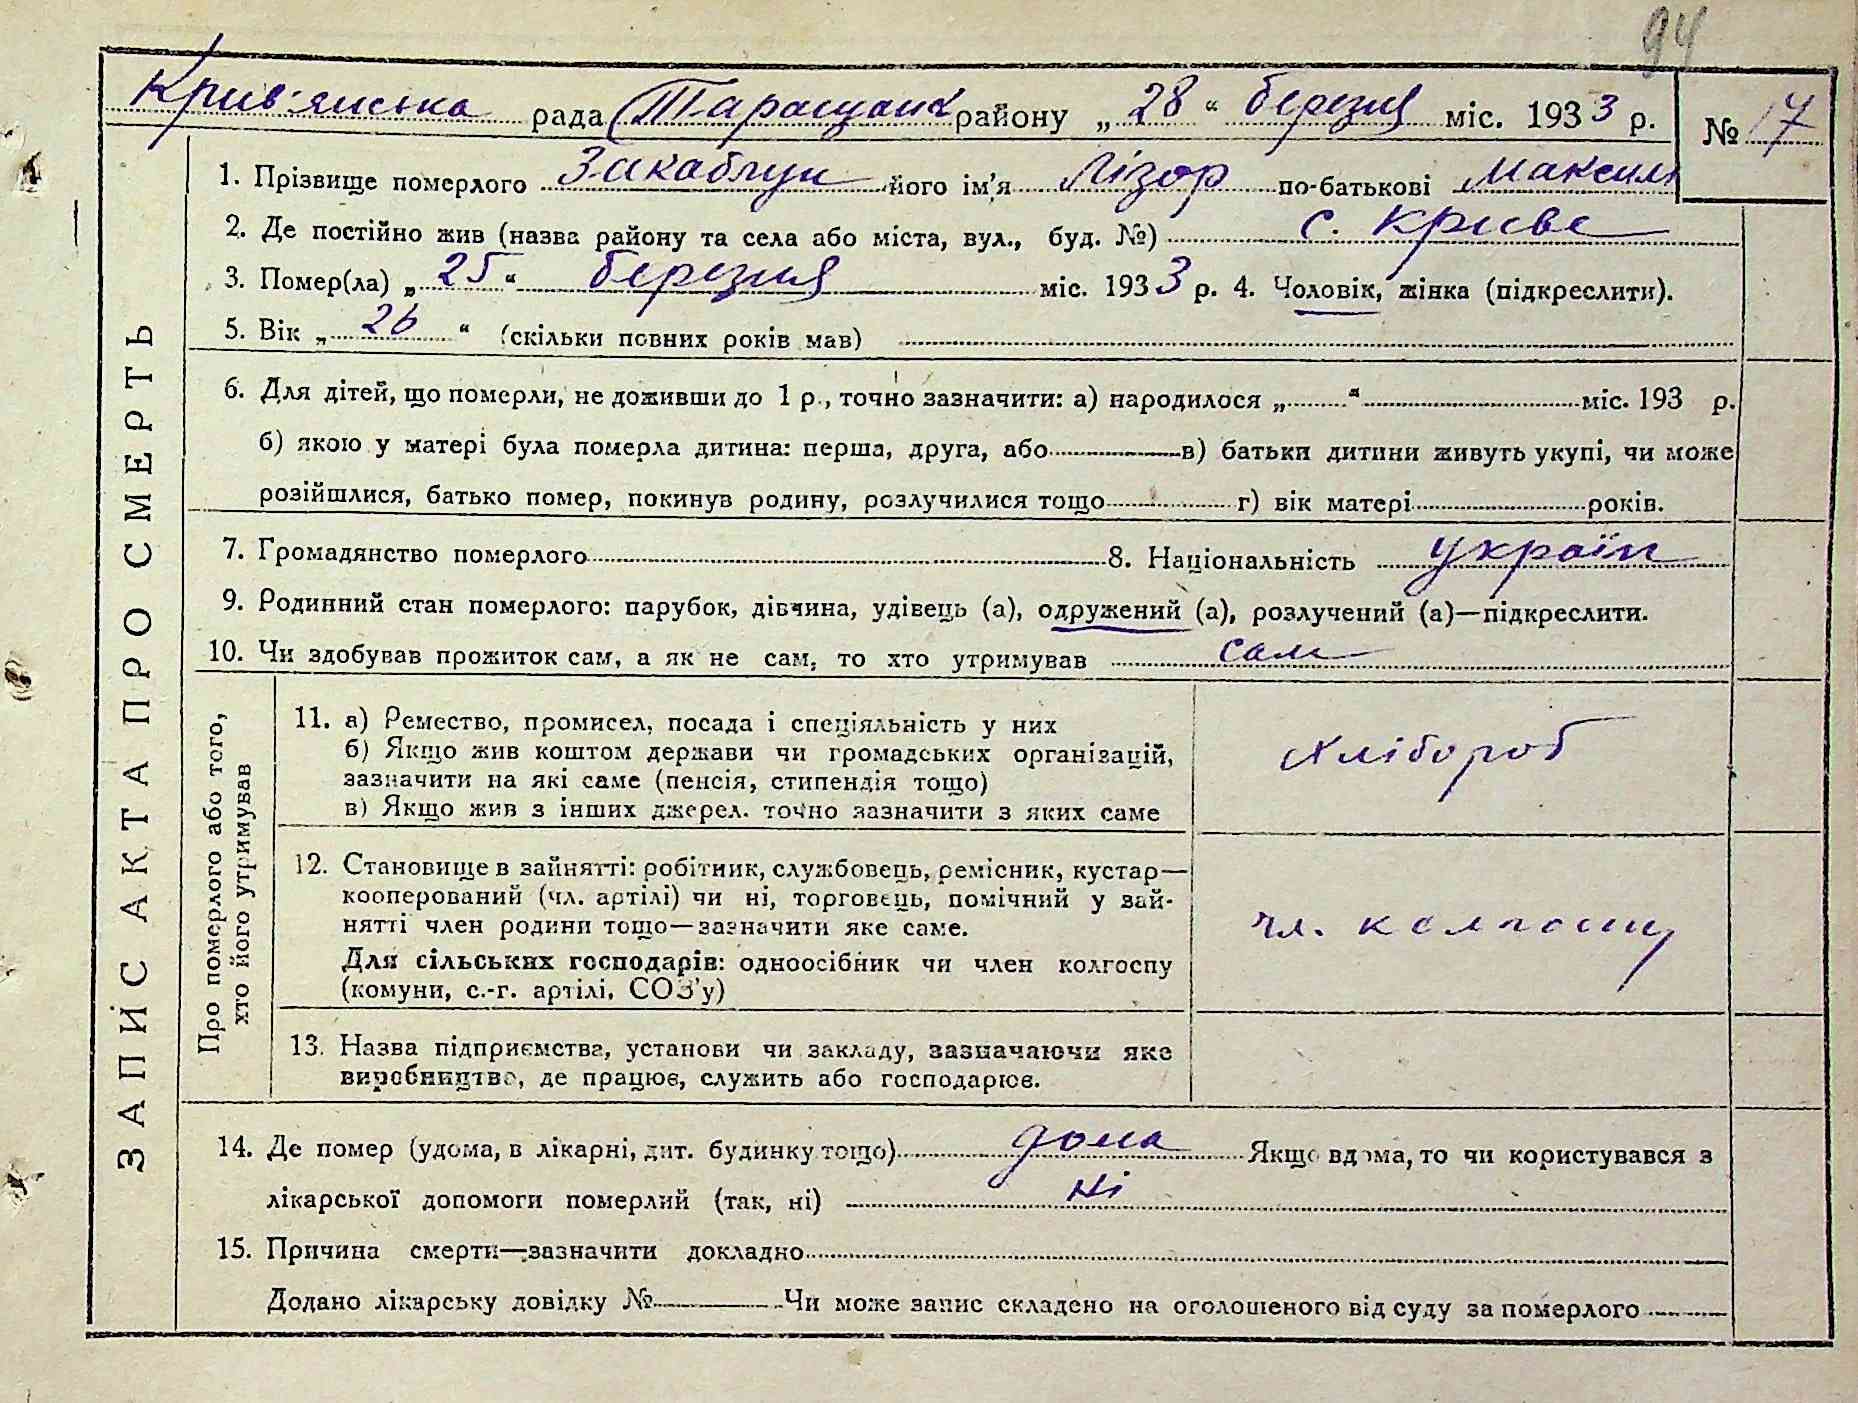 94
Крив'янська рада Таращанс району „28“ березня міс. 1933 р. № 17
1. Прізвище померлого Закаблук його ім'я Лізор по-батькові Максим
2. Де постійно жив (назва району та села або міста, вул., буд. №) с. Криве
3. Помер(ла) „25“ березня міс. 1933 р. 4. Чоловік, жінка (підкреслити).
5. Вік „26“ (скільки повних років мав)
6. Для дітей, що померли, не доживши до 1 р., точно зазначити: а) народилося „ “ міс. 193 р.
б) якою у матері була померла дитина: перша, друга, або в) батьки дитини живуть укупі, чи може
розійшлися, батько помер, покинув родину, розлучилися тощо г) вік матері років.
7. Громадянство померлого 8. Національність україн
9. Родинний стан померлого: парубок, дівчина, удівець (а), одружений (а), розлучений (а)—підкреслити.
10. Чи здобував прожиток сам, а як не сам, то хто утримував сам
ЗАПИС АКТА ПРО СМЕРТЬ
Про померлого або того,
хто його утримував
11. а) Ремество, промисел, посада і спеціяльність у них
б) Якщо жив коштом держави чи громадських організацій,
зазначити на які саме (пенсія, стипендія тощо)
в) Якщо жив з інших джерел. точно зазначити з яких саме
Хлібороб
12. Становище в зайнятті: робітник, службовець, ремісник, кустар—
кооперований (чл. артілі) чи ні, торговець, помічний у зай-
нятті член родини тощо—зазначити яке саме.
Для сільських господарів: одноосібник чи член колгоспу
(комуни, с.-г. артілі, СОЗ'у)
чл. колгоспу
13. Назва підприємства, установи чи закладу, зазначаючи яке
виробництво, де працює, служить або господарює.
14. Де помер (удома, в лікарні, дит. будинку тощо) дома Якщо вдома, то чи користувався з
лікарської допомоги померлий (так, ні) ні
15. Причина смерти—зазначити докладно
Додано лікарську довідку № Чи може запис складено на оголошеного від суду за померлого